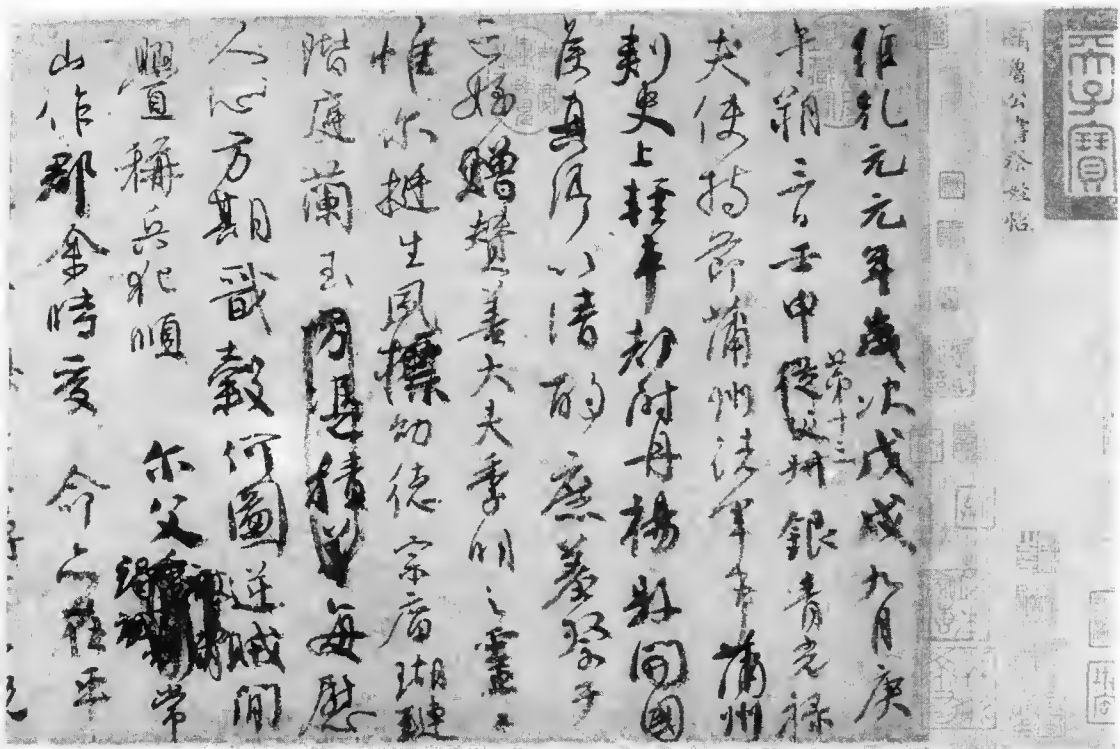 天子寶
顏魯公書祭姪帖
維乾元元年歲次戊戌九月庚
午朔三日壬申第十三從父叔銀青光祿
夫使持節蒲州諸軍事蒲州
刺史上輕車都尉丹楊縣開國
侯真卿以清酌庶羞祭于
亡姪贈贊善大夫季明之靈曰
惟爾挺生夙標幼德宗廟瑚璉
階庭蘭玉方憑積善每慰
人心方期戩穀何圖逆賊閒
釁稱兵犯順爾父竭誠常
山作郡余時受命亦在平